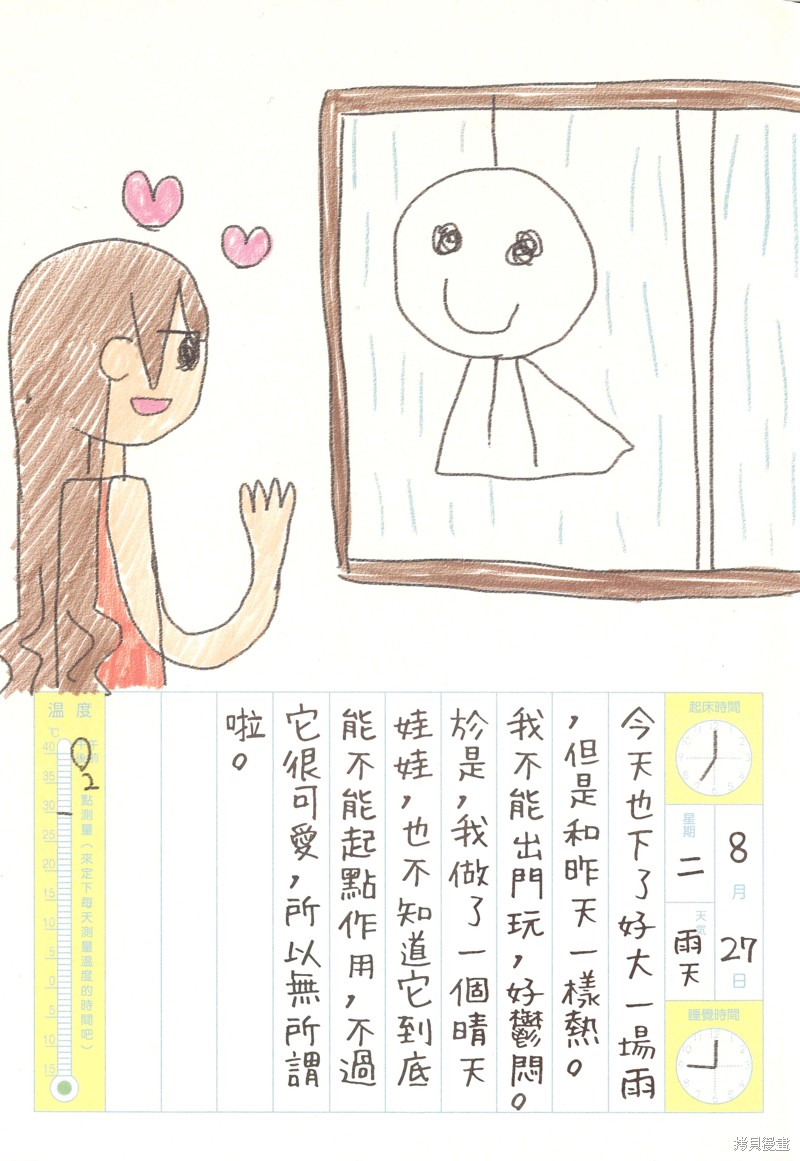 起床時間
8月27日
星期二
天氣
雨天
睡覺時間
今天也下了好大一場雨
，但是和昨天一樣熱。
我不能出門玩，好鬱悶。
於是，我做了一個晴天
娃娃，也不知道它到底
能不能起點作用，不過
它很可愛，所以無所謂
啦。
溫度
℃
40
35
30
25
20
15
10
5
0
5
10
15
2
點測量（來定下每天測量溫度的時間吧）
拷貝漫畫